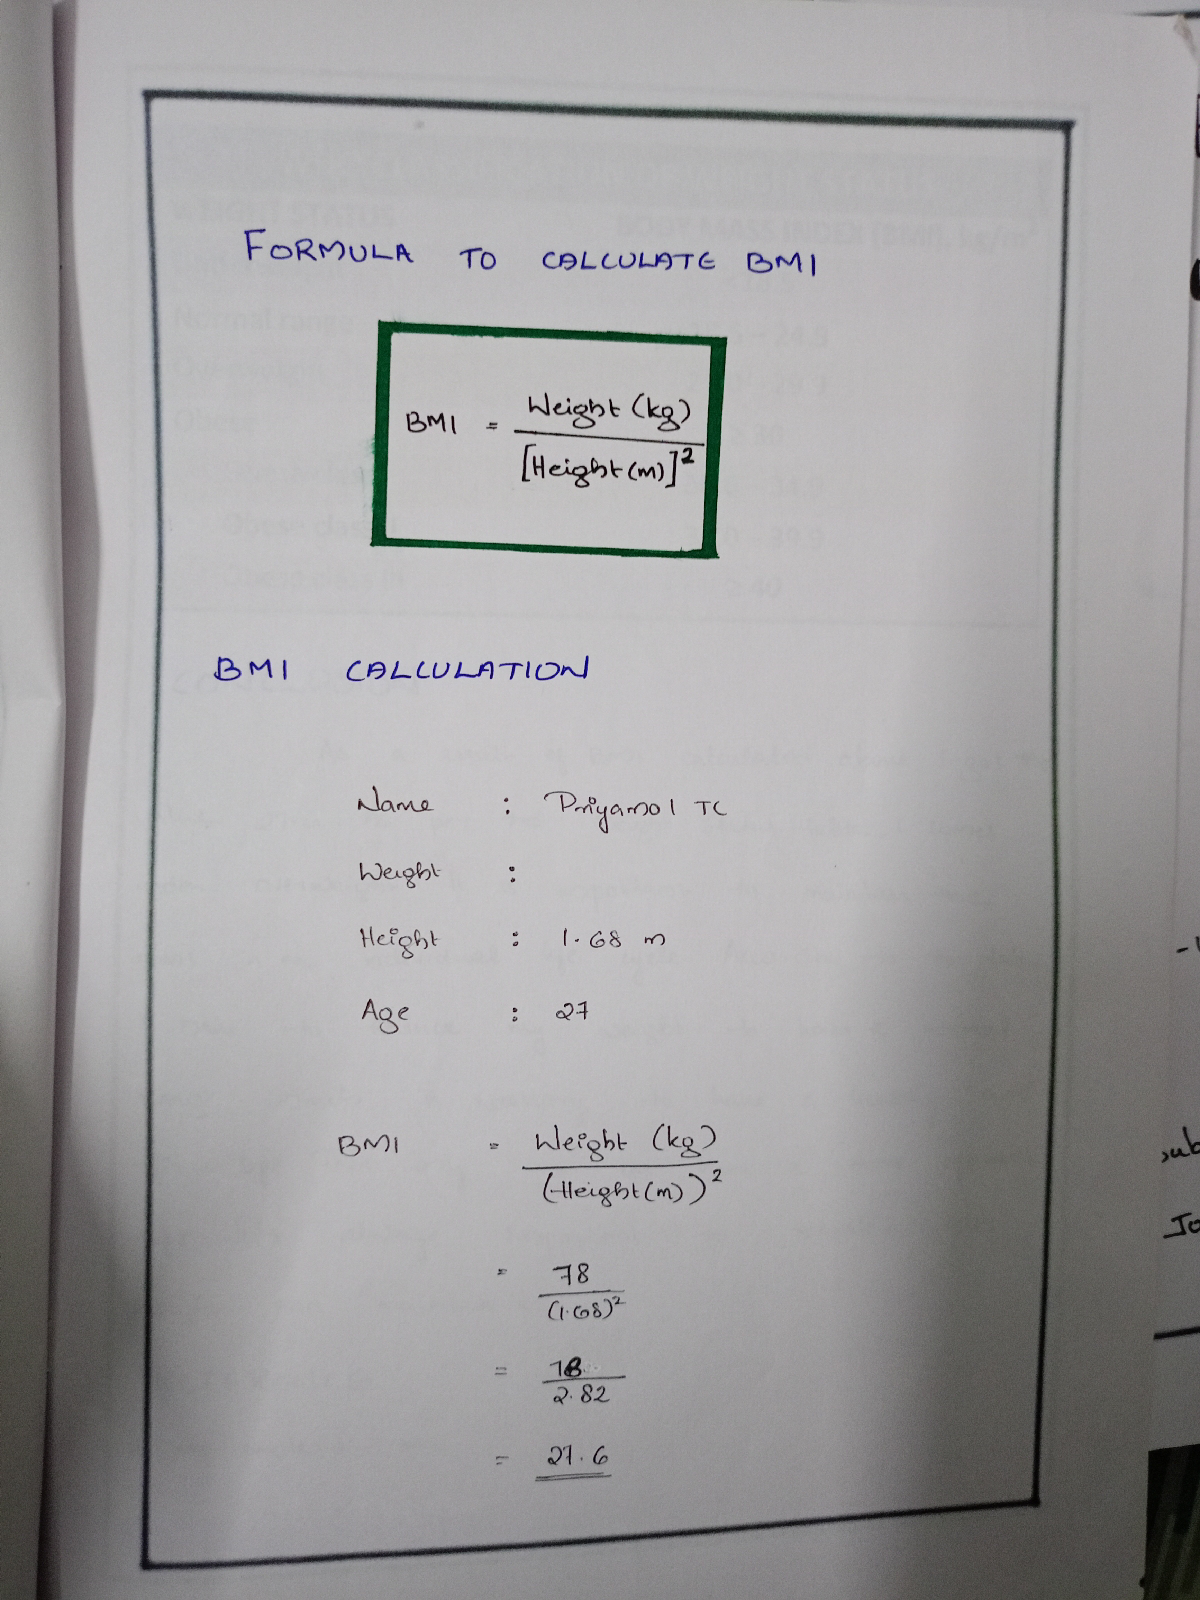 FORMULA TO CALCULATE BMI
BMI = Weight (kg)
[Height (m)]²
BMI CALCULATION
Name : Priyamol TC
Weight :
Height : 1.68 m
Age : 27
BMI = Weight (kg)
(Height (m))²
= 78
(1.68)²
= 78
2.82
= 27.6